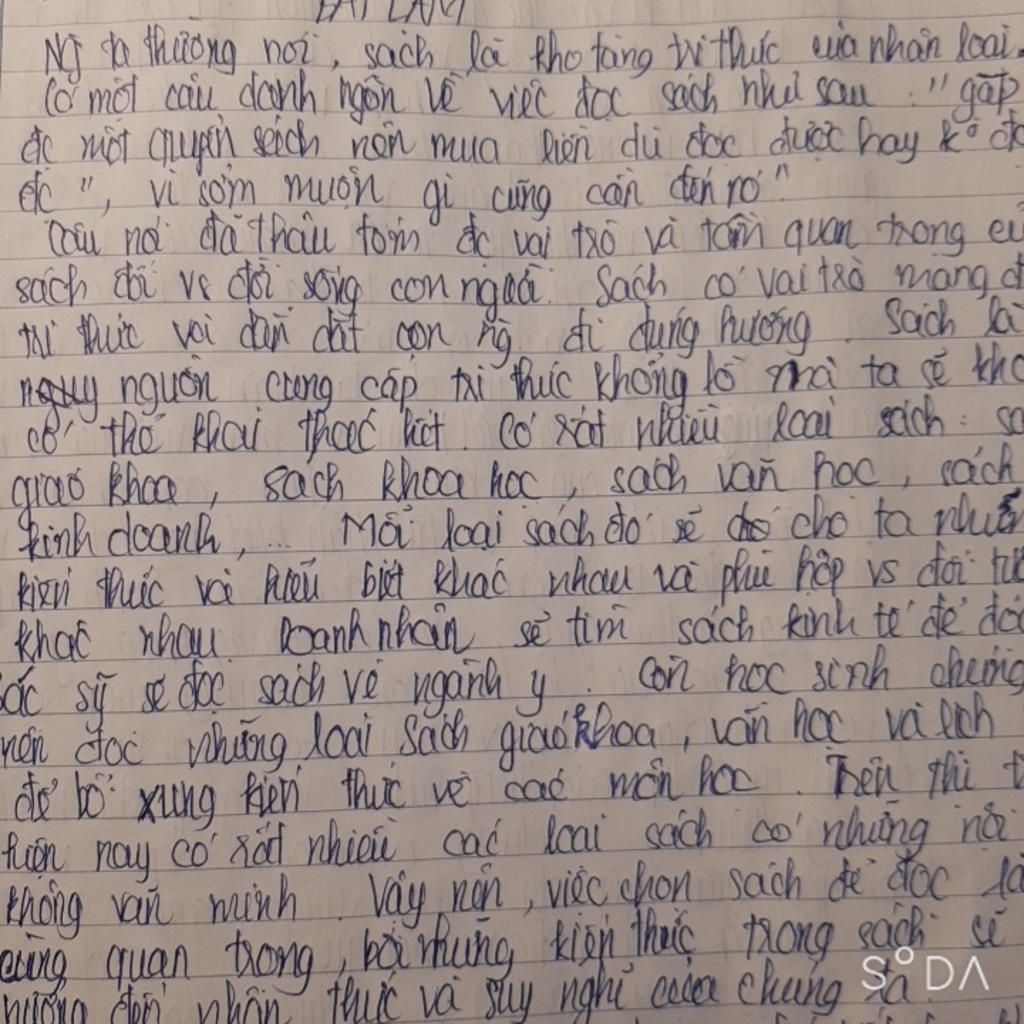 BÀI LÀM
Ng ta thường nói, sách là kho tàng tri thức của nhân loại.
Có một câu danh ngôn về việc đọc sách như sau : "gặp
đc một quyển sách nên mua liền dù đọc được hay k
đc", vì sớm muộn gì cũng cần đến nó"
Câu nói đã thâu tóm đc vai trò và tầm quan trong
sách đối vs đời sống con người. Sách có vai trò mang
tri thức và dẫn dắt con ng đi đúng hướng. Sách là
nguồn cung cấp tri thức khổng lồ mà ta sẽ
có thể khai thác hết. Có rất nhiều loại sách:
giáo khoa, sách khoa học, sách văn học, sách
kinh doanh, ... Mỗi loại sách đó sẽ cho ta
kiến thức và hiểu biết khác nhau và phù hợp vs đối
khác nhau. Doanh nhân sẽ tìm sách kinh tế để
sỹ sẽ đọc sách về ngành y. Còn học sinh
nên đọc những loại sách giáo khoa, văn học và lịch
để bổ xung kiến thức về các môn học. Trên thị
hiện nay có rất nhiều các loại sách có những
không văn minh. Vậy nên, việc chọn sách để đọc là
cùng quan trọng, bởi những kiến thức trong sách sẽ
hướng đến nhận thức và suy nghĩ của chúng ta.
SODA